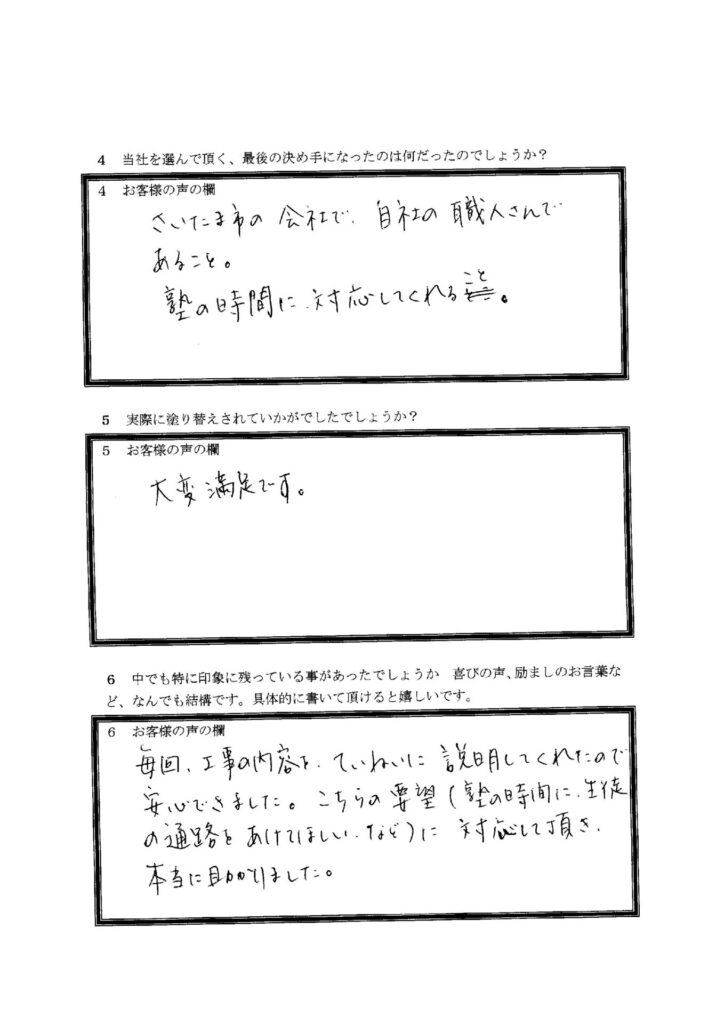 4 当社を選んで頂く、最後の決め手になったのは何だったのでしょうか?
4 お客様の声の欄
さいたま市の会社で、自社の職人さんで
あること。
塾の時間に、対応してくれること。
5 実際に塗り替えされていかがでしたでしょうか?
5 お客様の声の欄
大変満足です。
6 中でも特に印象に残っている事があったでしょうか 喜びの声、励ましのお言葉な
ど、なんでも結構です。具体的に書いて頂けると嬉しいです。
6 お客様の声の欄
毎回、工事の内容を、ていねいに説明してくれたので
安心できました。こちらの要望(塾の時間に、生徒
の通路をあけてほしい、など)に対応して頂き、
本当に助かりました。